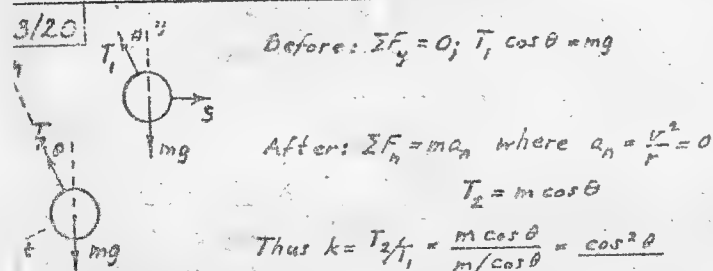 3/20
y
θ
T₁
S
mg
Before: ΣF_y = 0; T₁ cos θ = mg
n
T₂
θ
t
mg
After: ΣF_n = ma_n where a_n = v²/r = 0
T₂ = m cos θ
Thus k = T₂/T₁ = m cos θ / m/cos θ = cos² θ